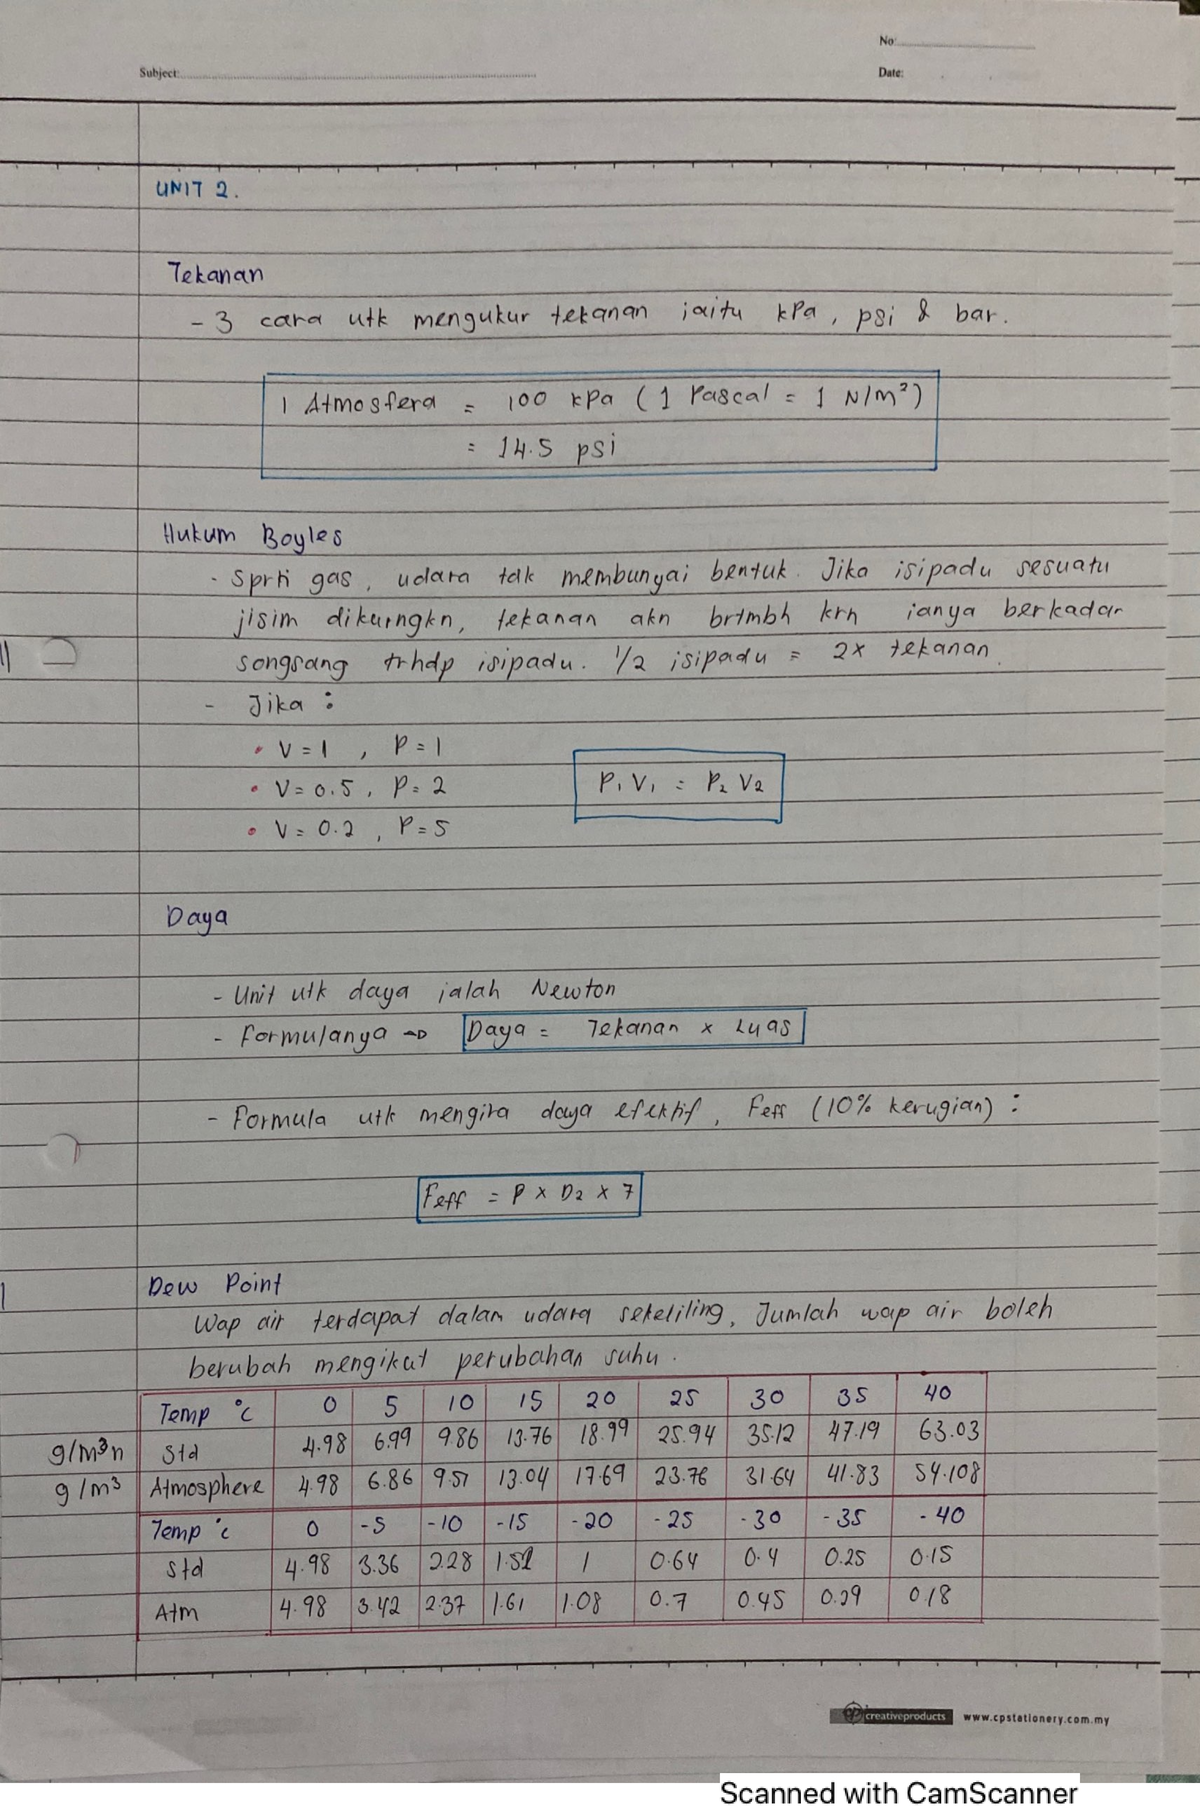 No:
Subject:
Date:
UNIT 2.
Tekanan
- 3 cara utk mengukur tekanan iaitu kPa, psi & bar.
1 Atmosfera = 100 kPa (1 Pascal = 1 N/m²)
= 14.5 psi
Hukum Boyles
- Sprti gas, udara tdk membunyai bentuk. Jika isipadu sesuatu
jisim dikurngkn, tekanan akn brtmbh krn ianya berkadar
songsang trhdp isipadu. 1/2 isipadu = 2x tekanan.
- Jika :
• V = 1 , P = 1
• V = 0.5 , P = 2
P₁ V₁ = P₂ V₂
• V = 0.2 , P = 5
Daya
- Unit utk daya ialah Newton
- Formulanya → Daya = Tekanan x Luas
- Formula utk mengira daya efektif, Feff (10% kerugian) :
Feff = P x D2 x 7
Dew Point
Wap air terdapat dalam udara sekeliling, Jumlah wap air boleh
berubah mengikut perubahan suhu.
Temp °c 0 5 10 15 20 25 30 35 40
g/m³n Std 4.98 6.99 9.86 13.76 18.99 25.94 35.12 47.19 63.03
g/m³ Atmosphere 4.98 6.86 9.51 13.04 17.69 23.76 31.64 41.83 54.108
Temp °c 0 -5 -10 -15 -20 -25 -30 -35 -40
Std 4.98 3.36 2.28 1.52 1 0.64 0.4 0.25 0.15
Atm 4.98 3.42 2.37 1.61 1.08 0.7 0.45 0.29 0.18
cp creativeproducts www.cpstationery.com.my
Scanned with CamScanner